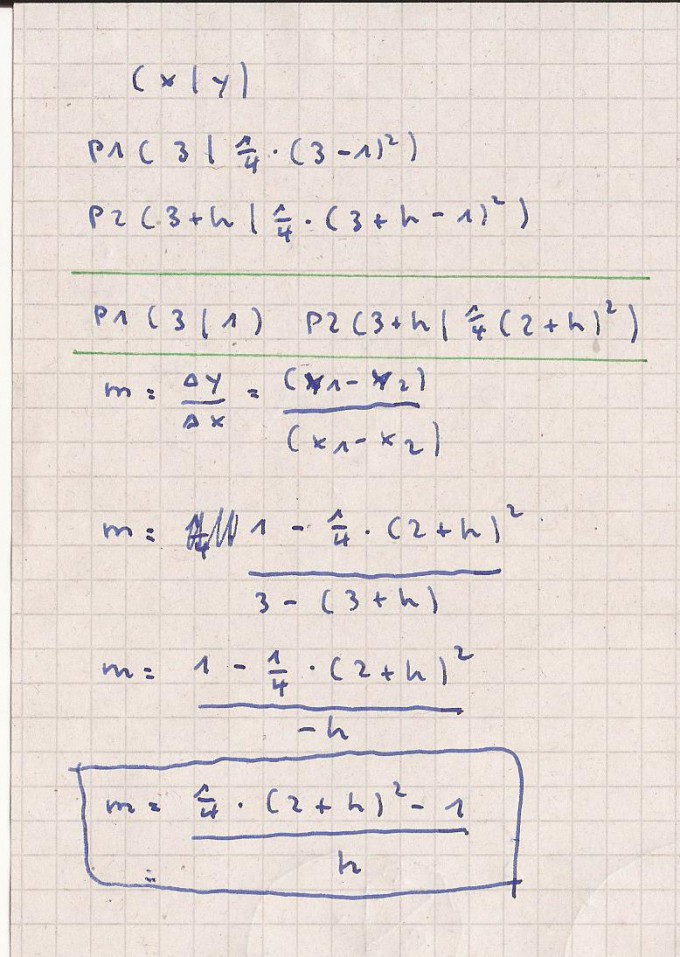 (x|y)
P1(3|1/4·(3-1)²)
P2(3+h|1/4·(3+h-1)²)
P1(3|1) P2(3+h|1/4(2+h)²)
m = Δy/Δx = (y1-y2)/(x1-x2)
m = 1 - 1/4·(2+h)² / 3-(3+h)
m = 1 - 1/4·(2+h)² / -h
m = 1/4·(2+h)² - 1 / h